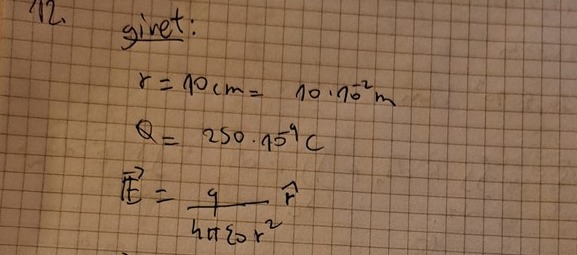 12.
givet:
r = 10 cm = 10 · 10⁻² m
Q = 250 · 10⁻⁹ C
E⃗ = q / 4πε₀r² r̂